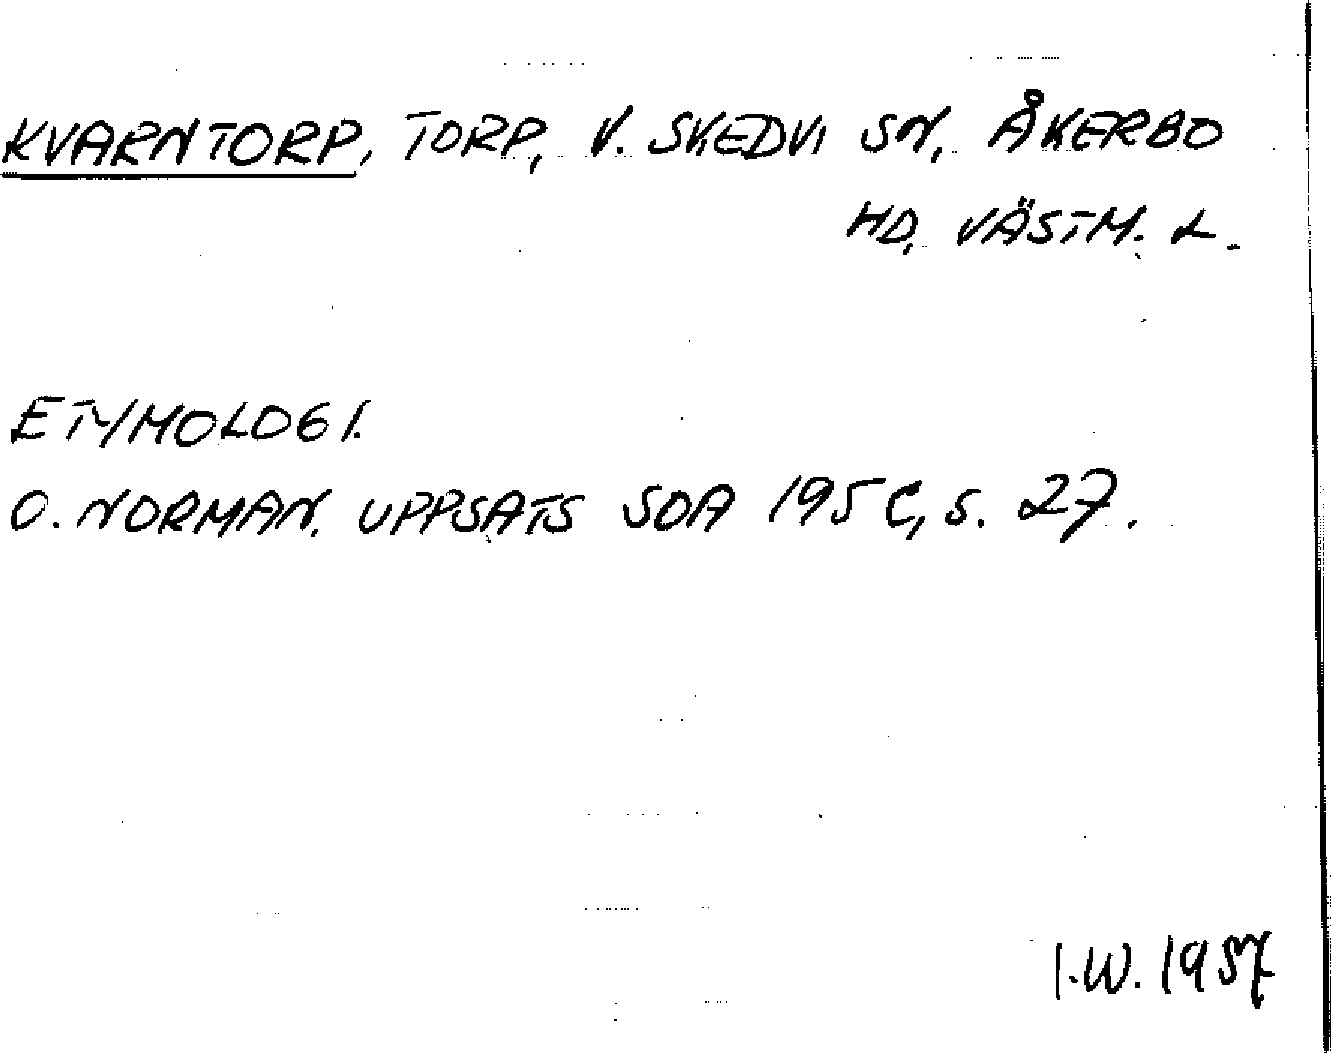 KVARNTORP, TORP, V. SKEDVI SN, ÅKERBO
HD, VÄSTM. L.
ETYMOLOGI.
O. NORMAN, UPPSATS SOA 195C, s. 27.
I.W. 1957